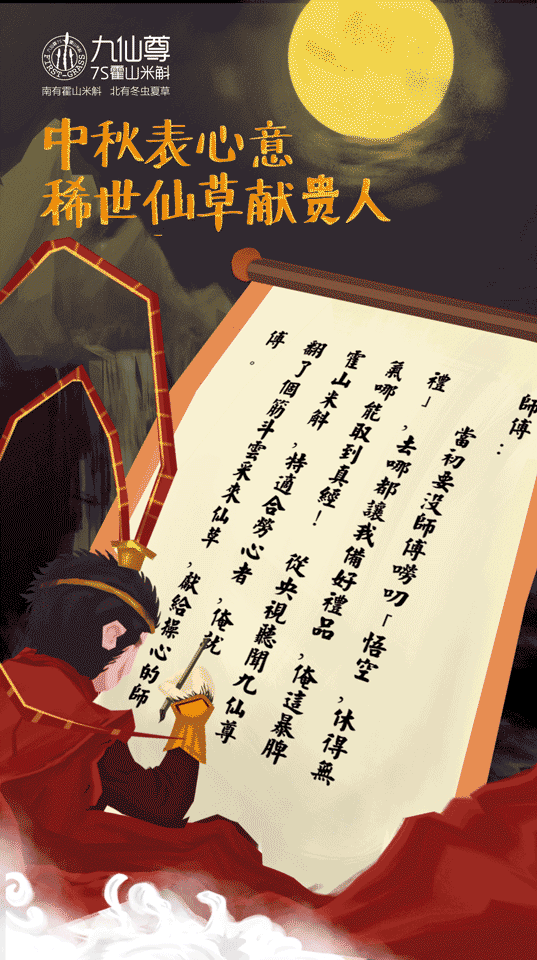 九仙尊
7S霍山米斛
FIRST-GRASS
南有霍山米斛 北有冬虫夏草
中秋表心意
稀世仙草献贵人
師傅：
當初要没師傅嘮叨「悟空，休得無
禮」，去哪都讓我備好禮品，俺這暴脾
氣哪能取到真經！從央視聽聞九仙尊
霍山米斛，特適合勞心者，俺就
翻了個筋斗雲采來仙草，獻給操心的師
傅。